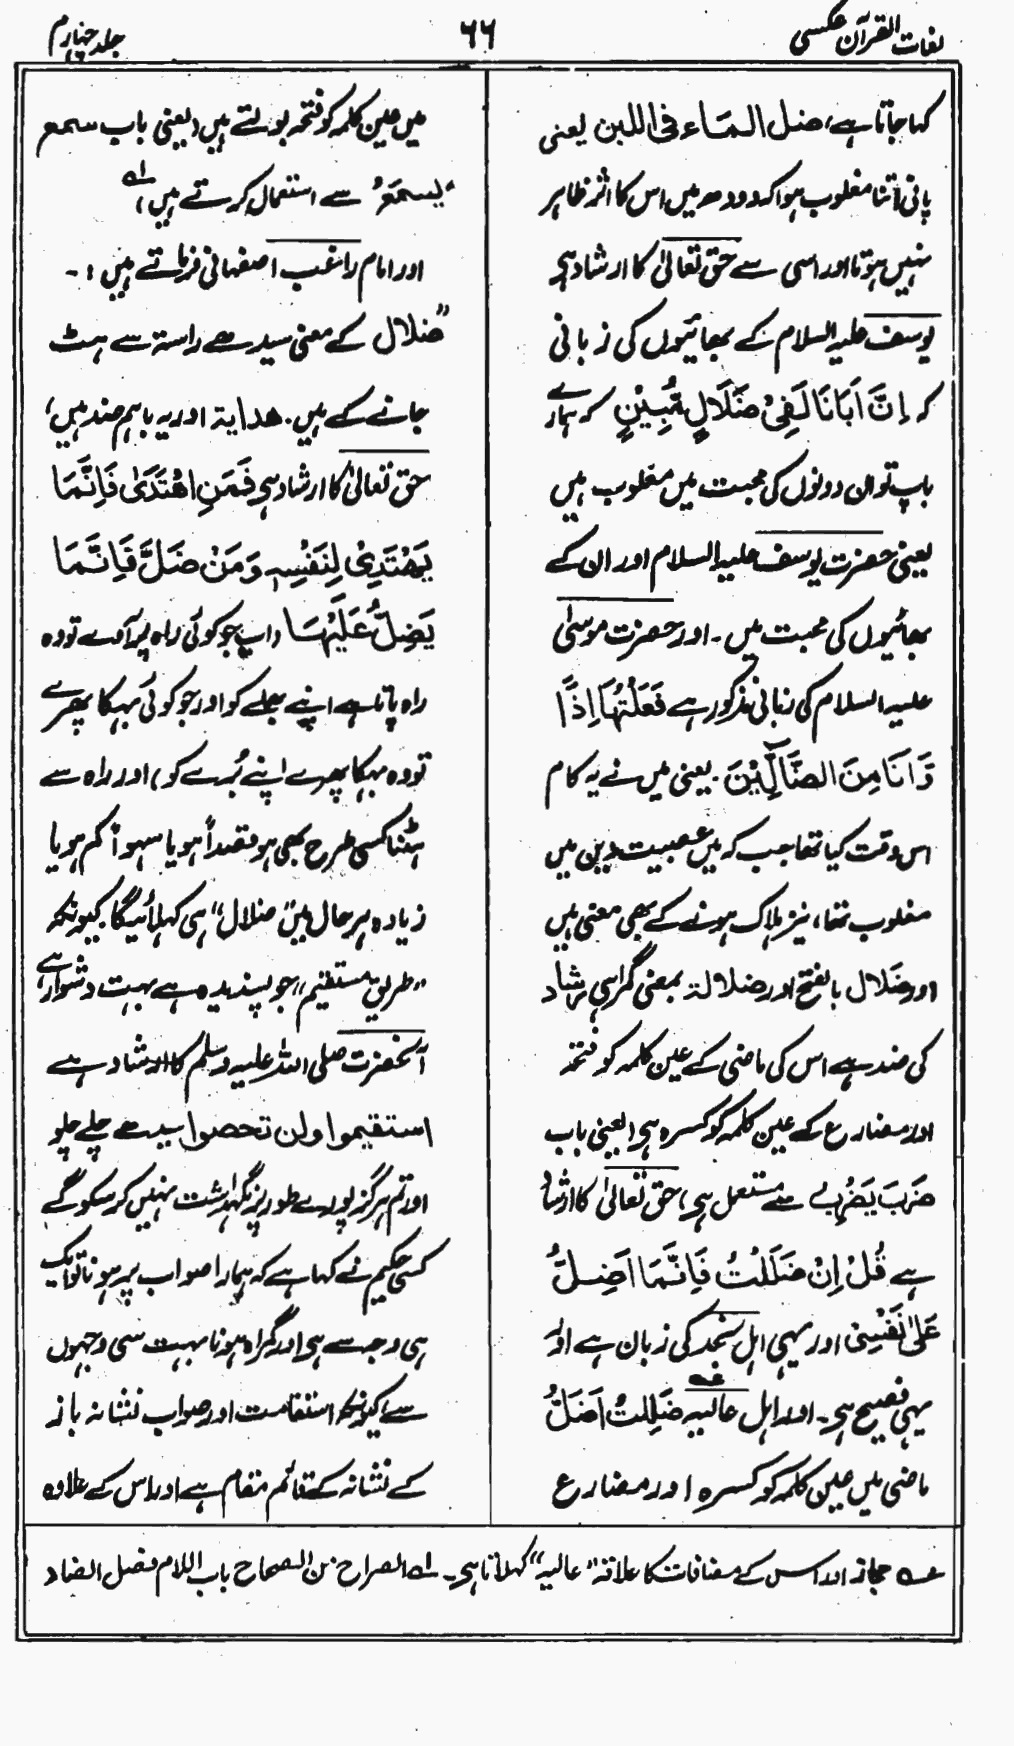 لغات القرآن عکسی
۶۶
جلد چہارم
کہا جاتا ہے، ضل الماء فی اللبن یعنی
پانی اتنا مغلوب ہوا کہ دودھ میں اس کا اثر ظاہر
نہیں ہوتا اور اسی سے حق تعالیٰ کا ارشاد ہی
یوسف علیہ السلام کے بھائیوں کی زبانی
کہ اِنَّ اَبَانَا لَفِیْ ضَلَالٍ مُّبِیْنٍ کہ ہمارے
باپ تو ان دونوں کی محبت میں مغلوب ہیں
یعنی حضرت یوسف علیہ السلام اور ان کے
بھائیوں کی محبت میں۔ اور حضرت موسیٰ
علیہ السلام کی زبانی مذکور ہے فَعَلْتُهَا اِذًا
وَّ اَنَا مِنَ الضَّآلِّیْنَ۔ یعنی میں نے یہ کام
اس وقت کیا تھا جب کہ میں عصبیت دین میں
مغلوب تھا، نیز ہلاک ہونے کے بھی معنی ہیں
اور ضَلال بالفتح اور ضلالة بمعنی گمراہی رشاد
کی ضد ہے اس کی ماضی کے عین کلمہ کو فتحہ
اور مضارع کے عین کلمہ کو کسرہ ہی (یعنی باب
ضَرَبَ یَضْرِبُ سے مستعمل ہی) حق تعالیٰ کا ارشاد
ہے قُلْ اِنْ ضَلَلْتُ فَاِنَّمَا اَضِلُّ
عَلٰی نَفْسِیْ اور یہی اہل نجد کی زبان ہے اور
یہی فصیح ہی۔ اور اہل عالیہ عہ ضَلِلْتُ اَضَلُّ
ماضی میں عین کلمہ کو کسرہ اور مضارع
میں عین کلمہ کو فتحہ بولتے ہیں (یعنی باب سمع
یسمَعُ سے استعمال کرتے ہیں) لہ
اور امام راغب اصفہانی فرماتے ہیں :۔
"ضلال کے معنی سیدھے راستہ سے ہٹ
جانے کے ہیں۔ ھدایة اور یہ باہم ضد ہیں،
حق تعالیٰ کا ارشاد ہی فَمَنِ اهْتَدٰی فَاِنَّمَا
یَهْتَدِیْ لِنَفْسِهٖ وَمَنْ ضَلَّ فَاِنَّمَا
یَضِلُّ عَلَیْهَا (اب جو کوئی راہ پر آوے تو وہ
راہ پاتا ہے اپنے بھلے کو اور جو کوئی بہکا پھرے
تو وہ بہکا پھرے اپنے بُرے کو) اور راہ سے
ہٹنا کسی طرح بھی ہو قصداً ہو یا سہواً کم ہو یا
زیادہ ہر حال میں "ضلال" ہی کہلائیگا۔ کیونکہ
"طریق مستقیم" جو پسندیدہ ہے بہت دشوار ہے
آنحضرت صلی اللہ علیہ وسلم کا ارشاد ہے
استقیموا ولن تحصوا سیدھے چلے چلو
اور تم ہرگز پورے طور پر نگہداشت نہیں کر سکو گے
کسی حکیم نے کہا ہے کہ ہمارا صواب پر ہونا تو ایک
ہی وجہ سے ہی اور گمراہ ہونا بہت سی وجہوں
سے، کیونکہ استقامت اور صواب نشانہ باز
کے نشانہ کے قائم مقام ہے اور اس کے علاوہ
عہ حجاز اور اس کے مضافات کا علاقہ "عالیہ" کہلاتا ہی۔ لہ الصراح من الصحاح باب اللام فصل الضاد